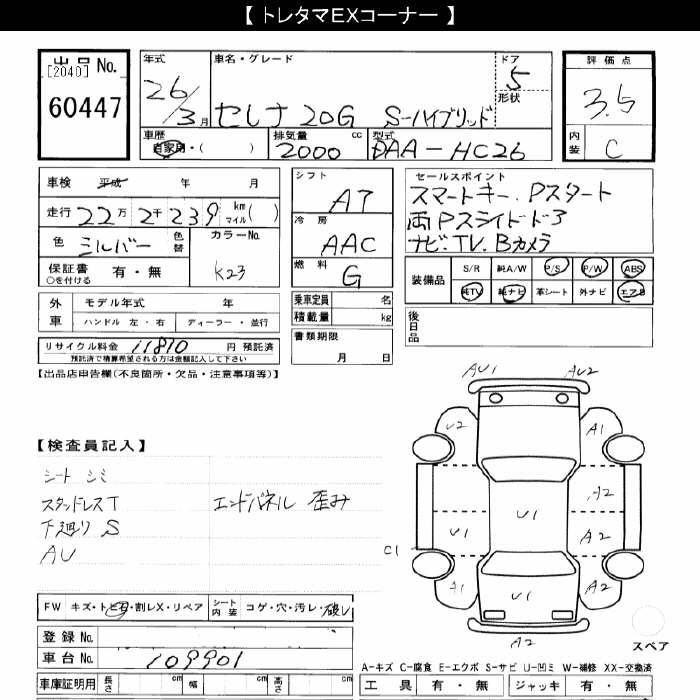 【 トレタマEXコーナー 】
出品 No.
[2040]
60447
年式
26/3月
車名・グレード
セレナ 20G S-ハイブリッド
ドア
5
形状
評価点
3.5
内装
C
車歴
自家用・( )
排気量
2000 cc
型式
DAA-HC26
車検 平成 年 月
走行 22万 2千 239 km マイル( )
色 シルバー 色替
カラーNo.
K23
保証書 有・無
○を付ける
シフト
AT
冷房
AAC
燃料
G
セールスポイント
スマートキー、Pスタート
両Pスライドドア
ナビ、TV、Bカメラ
装備品
S/R 純A/W P/S P/W ABS
純TV 純ナビ 革シート 外ナビ エアB
外車
モデル年式 年
ハンドル 左・右 ディーラー・並行
乗車定員 名
積載量 kg
後日品
リサイクル料金 11810 円 預託済
預託済で精算希望される方は金額記入して下さい
書類期限
月 日
【出品店申告欄(不良箇所・欠品・注意事項等)】
【検査員記入】
シート シミ
スタッドレスT
エンドパネル 歪み
下廻り S
AU
AU1
AU2
U2
A1
A2
U1
U1
A2
C1
A1
U1
A2
A2
スペア
FW キズ・トビ石・割レX・リペア
シート内装 コゲ・穴・汚レ・破レ
登録 No.
車台 No.
109901
車庫証明用 長さ cm 幅 cm 高さ cm
A-キズ C-腐食 E-エクボ S-サビ U-凹ミ W-補修 XX-交換済
工具 有・無 ジャッキ 有・無